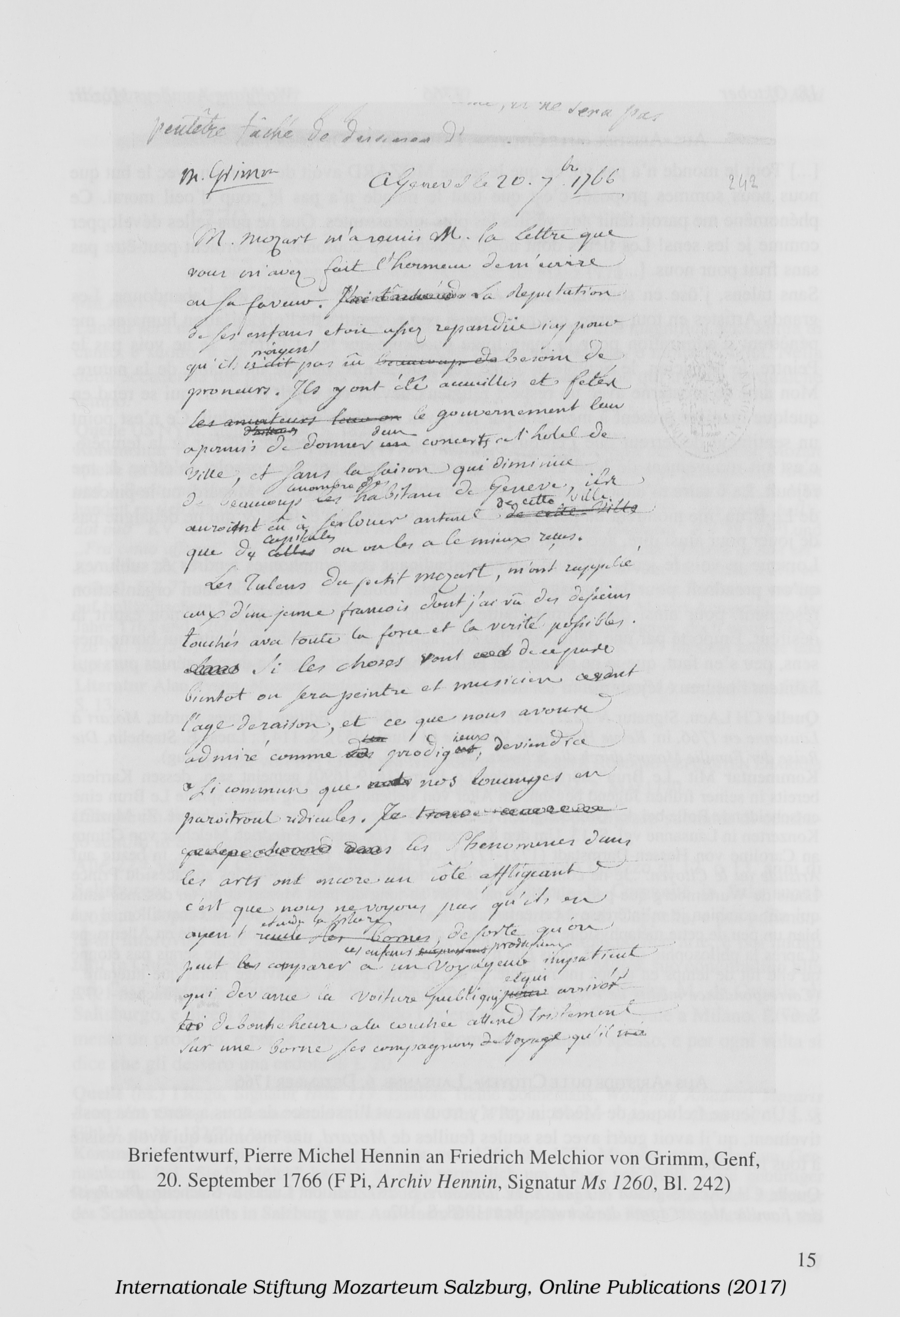 et ne sera pas
peutêtre faché de
M. Grimm
A Geneve le 20. 7bre. 1766
242
M. Mozart m'a remis M. la lettre que
vous m'avez fait l'honneur de m'ecrire
en sa faveur. La reputation
de ses enfans etoit assez repandüe icy pour
qu'il n'eut pas eu besoin de
proneurs. Ils y ont été acueillis et fetés
les amateurs le gouvernement leur
a permis de donner deux concerts a l'hotel de
Ville, et sans la saison qui diminue
de beaucoup les habitans de Geneve, ils
auroient eu à se louer autant de cette Ville
que des capitales ou on les a le mieux reçus.
Les Talens du petit Mozart, m'ont rappellé
ceux d'un jeune francois dont j'ai vu des desseins
touchés avec toute la force et la verité possibles.
Si les choses vont de ce pas
bientot on sera peintre et musicien avant
l'age de raison, et ce que nous avons
admiré comme prodigieux, deviendra
si commun que nos louanges en
paroitront ridicules. Je trouve encore
les Phenomenes dans
les arts ont encore un côté affligeant
c'est que nous ne voyons pas qu'ils en
ayent etendu la sphere, de sorte qu'on
peut comparer ces enfans a un Voyageur impatient
qui devance la voiture publique et qui arrivé
de bonne heure a la couchée attend tristement
sur une borne ses compagnons de voyage qu'il
Briefentwurf, Pierre Michel Hennin an Friedrich Melchior von Grimm, Genf,
20. September 1766 (F Pi, Archiv Hennin, Signatur Ms 1260, Bl. 242)
15
Internationale Stiftung Mozarteum Salzburg, Online Publications (2017)